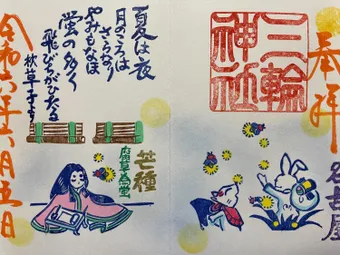 奉拝
三輪神社
名古屋
夏は夜
月のころは
さらなり
やみもなほ
蛍の多く
飛びちがひたる
枕草子より
芒種
腐草為蛍
令和六年六月五日